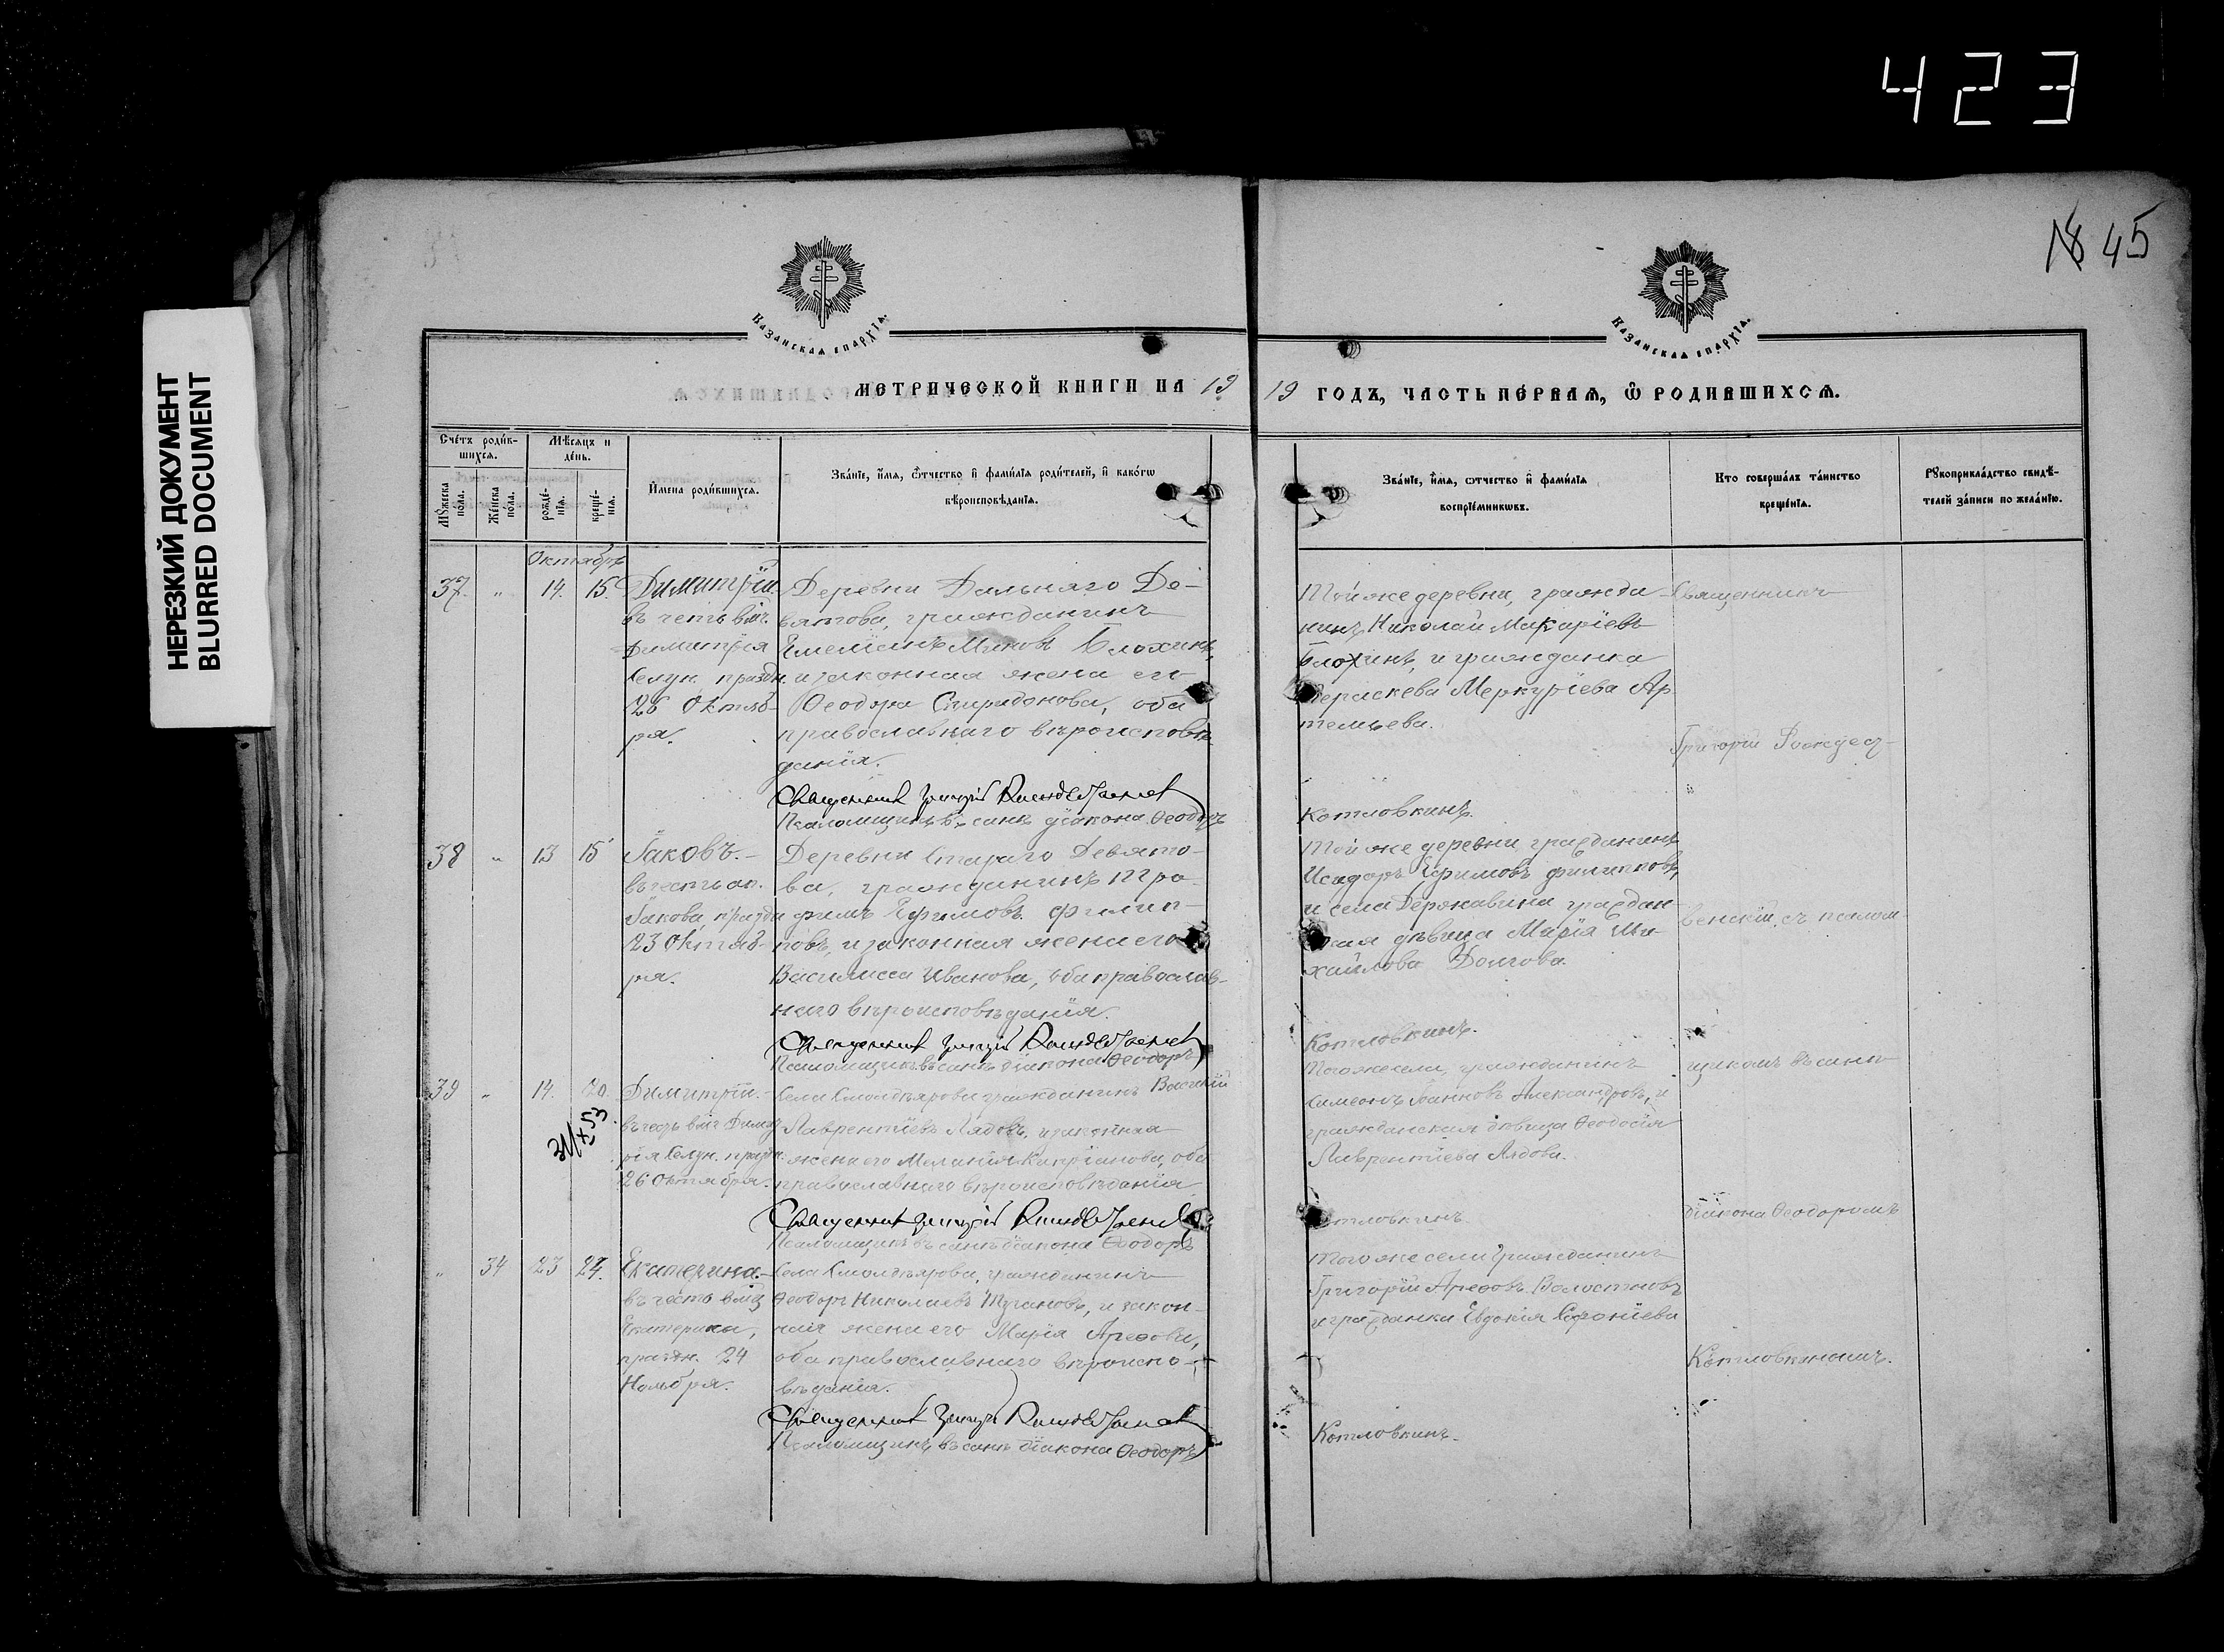 423
НЕРЕЗКИЙ ДОКУМЕНТ
BLURRED DOCUMENT
45
Казанская епархїа.
Казанская епархїа.
МЕТРИЧЕСКОЙ КНИГИ НА 19
19 ГОДЪ, ЧАСТЬ ПЕРВАЯ, Ѡ РОДИВШИХСЯ.
Счетъ родив-
шихся.
Мѣсяцъ и
день.
Мꙋжеска
пола.
Женска
пола.
рожде-
нїя.
креще-
нїя.
Имена родившихся.
Званїе, имя, ѿчество и фамилїя родителей, и какогѡ
вѣроисповѣданїя.
Званїе, имя, ѿчество и фамилїя
воспрїемникѡвъ.
Кто совершалъ таинство
крещенїя.
Рꙋкоприкладство свидѣ-
телей записи по желанїю.
Октябрь
37. " 14. 15. Димитрїй
въ честь вмч.
Димитрїя
Селун. праздн.
26 Октяб-
ря.
Деревни Дальняго Де-
вятова, гражданинъ
Емелїанъ Миновъ Блохинъ,
и законная жена его
Ѳеодора Спиридонова, оба
православнаго вѣроисповѣ-
данїя.
Священник Григорїй Рождественскїй
Псаломщикъ въ санѣ дїакона Ѳеодоръ
Той же деревни, гражда-
нинъ Николай Макарїевъ
Блохинъ, и гражданка
Параскева Меркурїева Ар-
темьева.
Котловкинъ.
Священникъ
Григорїй Рождест-
38 " 13 15 Їаковъ.-
въ честь ап.
Їакова, праздн
23 Октяб-
ря.
Деревни Стараго Девято-
ва, гражданинъ Тро-
фимъ Ефимовъ Филип-
повъ, и законная жена его
Василисса Иванова, оба православ-
наго вѣроисповѣданїя.
Священник Григорїй Рождественскїй
Псаломщикъ въ санѣ дїакона Ѳеодоръ
Той же деревни гражданинъ
Исидоръ Ефимовъ Филипповъ,
и села Державина граждан-
ская дѣвица Марїя Ми-
хайлова Долгова.
Котловкинъ.
венскїй, съ псалом-
39 " 14. 20. Димитрїй.-
въ честь вмч Димит
рїя Селун. праздн.
26 Октября.
Села Смолдеярова гражданинъ Василїй
Лаврентїевъ Лядовъ, и законная
жена его Меланїя Кипрїанова, оба
православнаго вѣроисповѣданїя
Священник Григорїй Рождественскїй
Псаломщикъ въ санѣ дїакона Ѳеодоръ
Того же села, гражданинъ
Симеонъ Їоанновъ Александровъ, и
гражданская дѣвица Ѳеодосїя
Лаврентїева Лядова.
Котловкинъ.
щикомъ въ санѣ
дїакона Ѳеодоромъ
" 34 23 24. Екатерина.-
въ честь вмц
Екатерины,
праздн. 24
Ноября.
Села Смолдеярова, гражданинъ
Ѳеодоръ Николаевъ, и закон-
ная жена его Марїя Арефова,
оба православнаго вѣроиспо-
вѣданїя.
Священник Григорїй Рождественскїй
Псаломщикъ въ санѣ дїакона Ѳеодоръ
Того же села гражданинъ
Григорїй Арефовъ
и гражданка Евдокїя Софонїева
Котловкинъ.
Котловкиномъ.